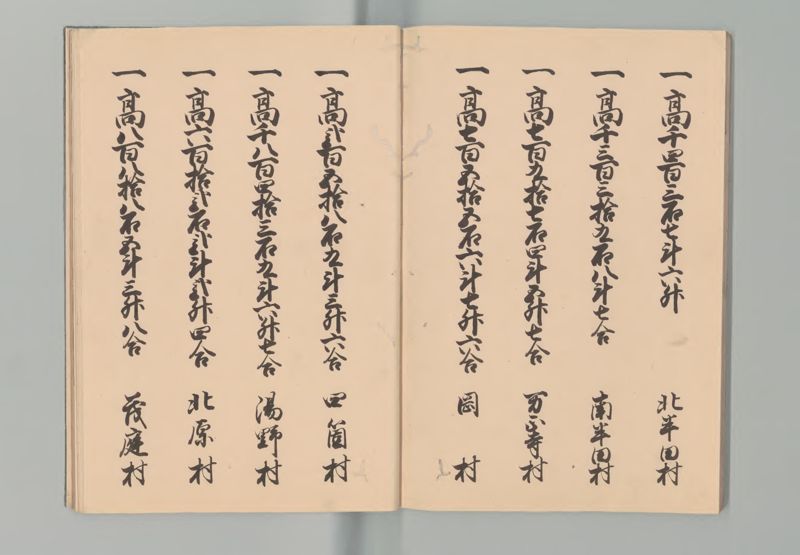 一高千四百三石七斗六升 北半田村
一高千三百三拾五石八斗七合 南半田村
一高七百九拾七石四斗五升七合 万正寺村
一高七百五拾五石六斗七升六合 岡村
一高弐百五拾八石九斗三升六合 四箇村
一高千八百四拾三石九斗六升七合 湯野村
一高六百拾弐石弐斗弐升四合 北原村
一高八百八拾八石五斗三升八合 茂庭村